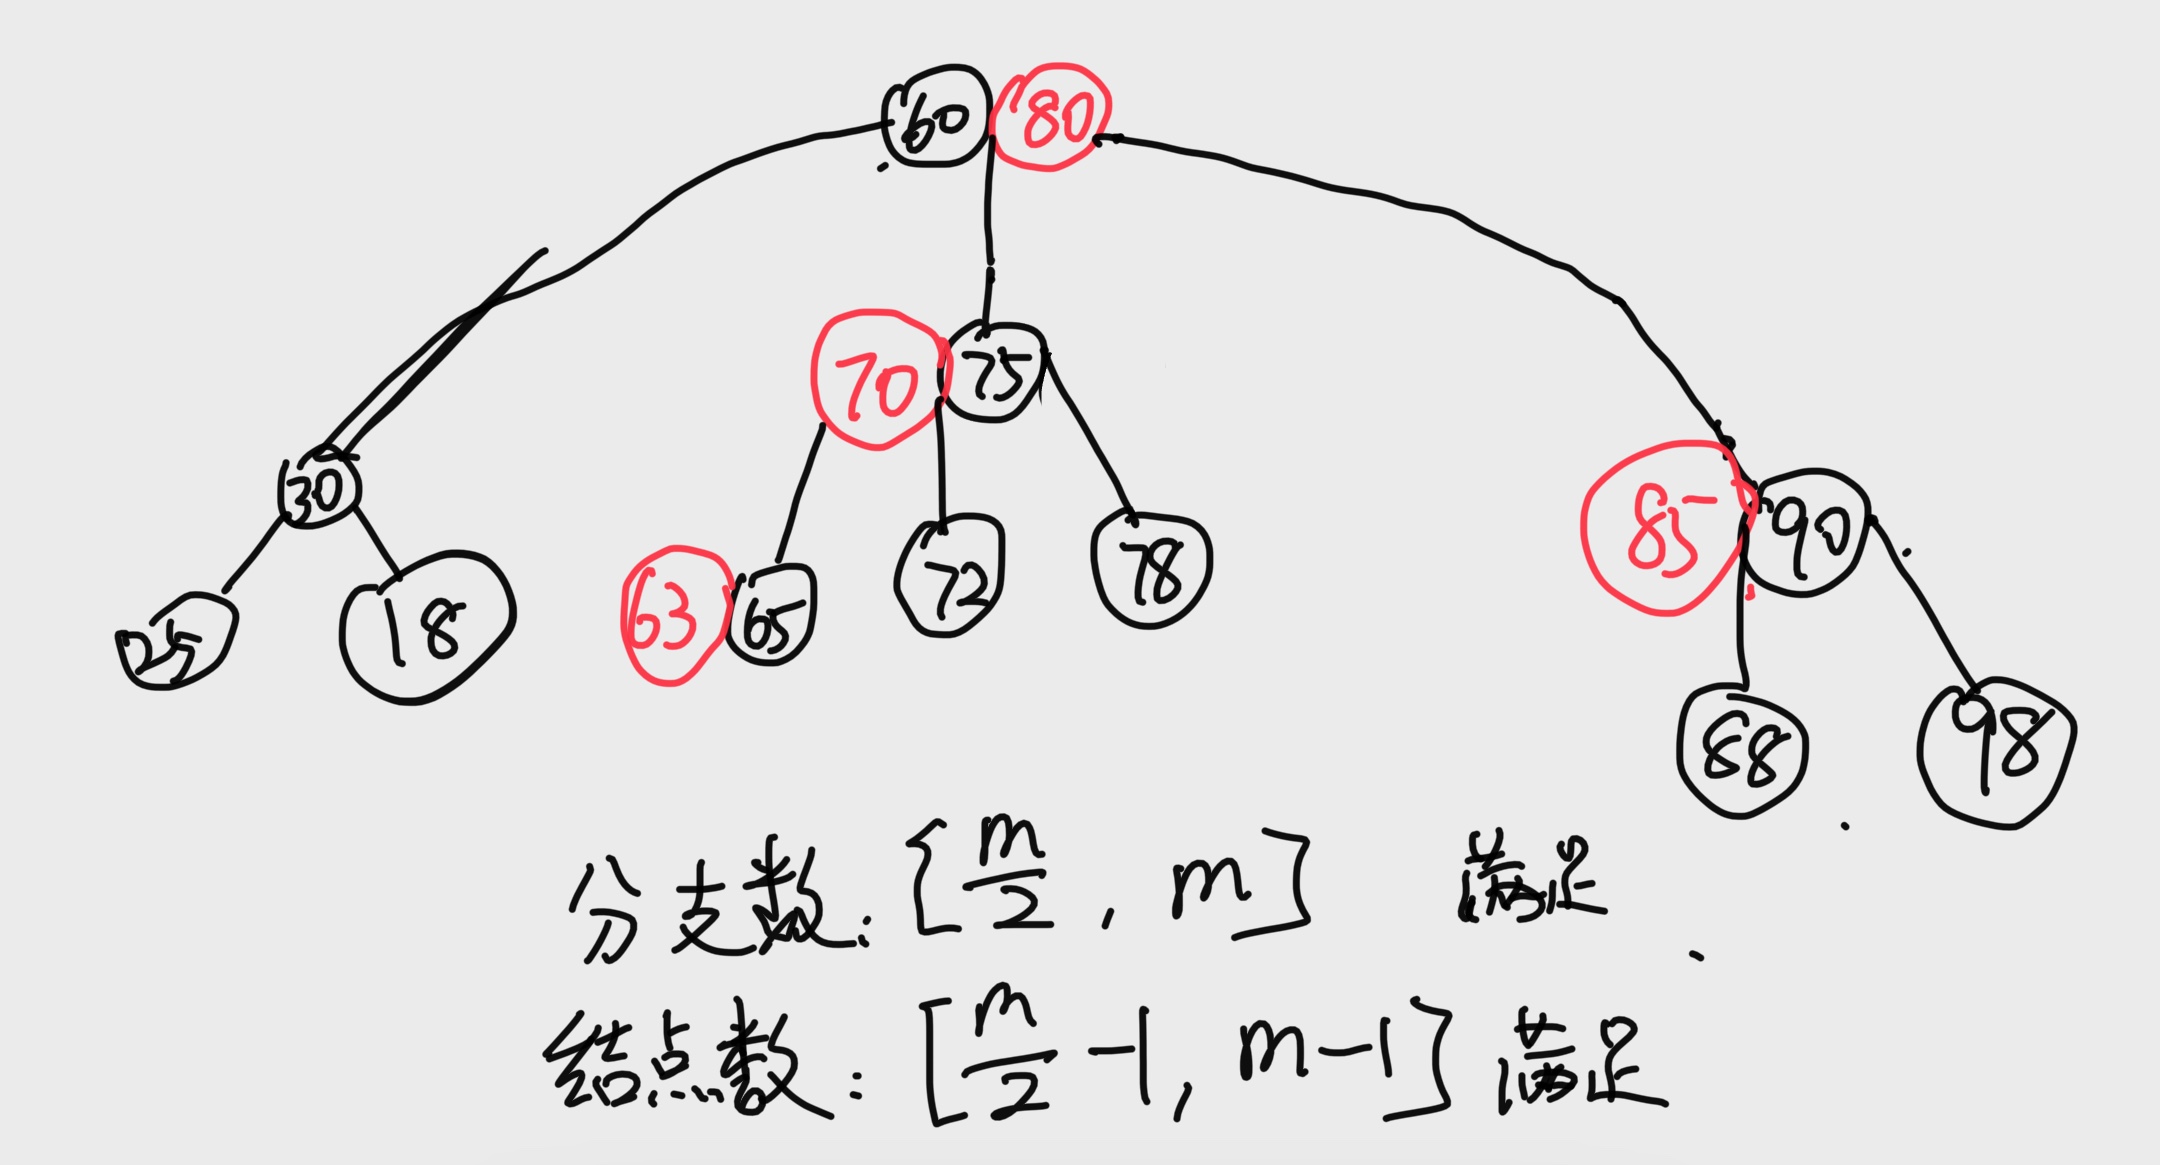 60 80
70 75
30
85 90
25 18 63 65 72 78
88 98
分支数: [m/2, m] 满足
结点数: [m/2 -1, m-1] 满足